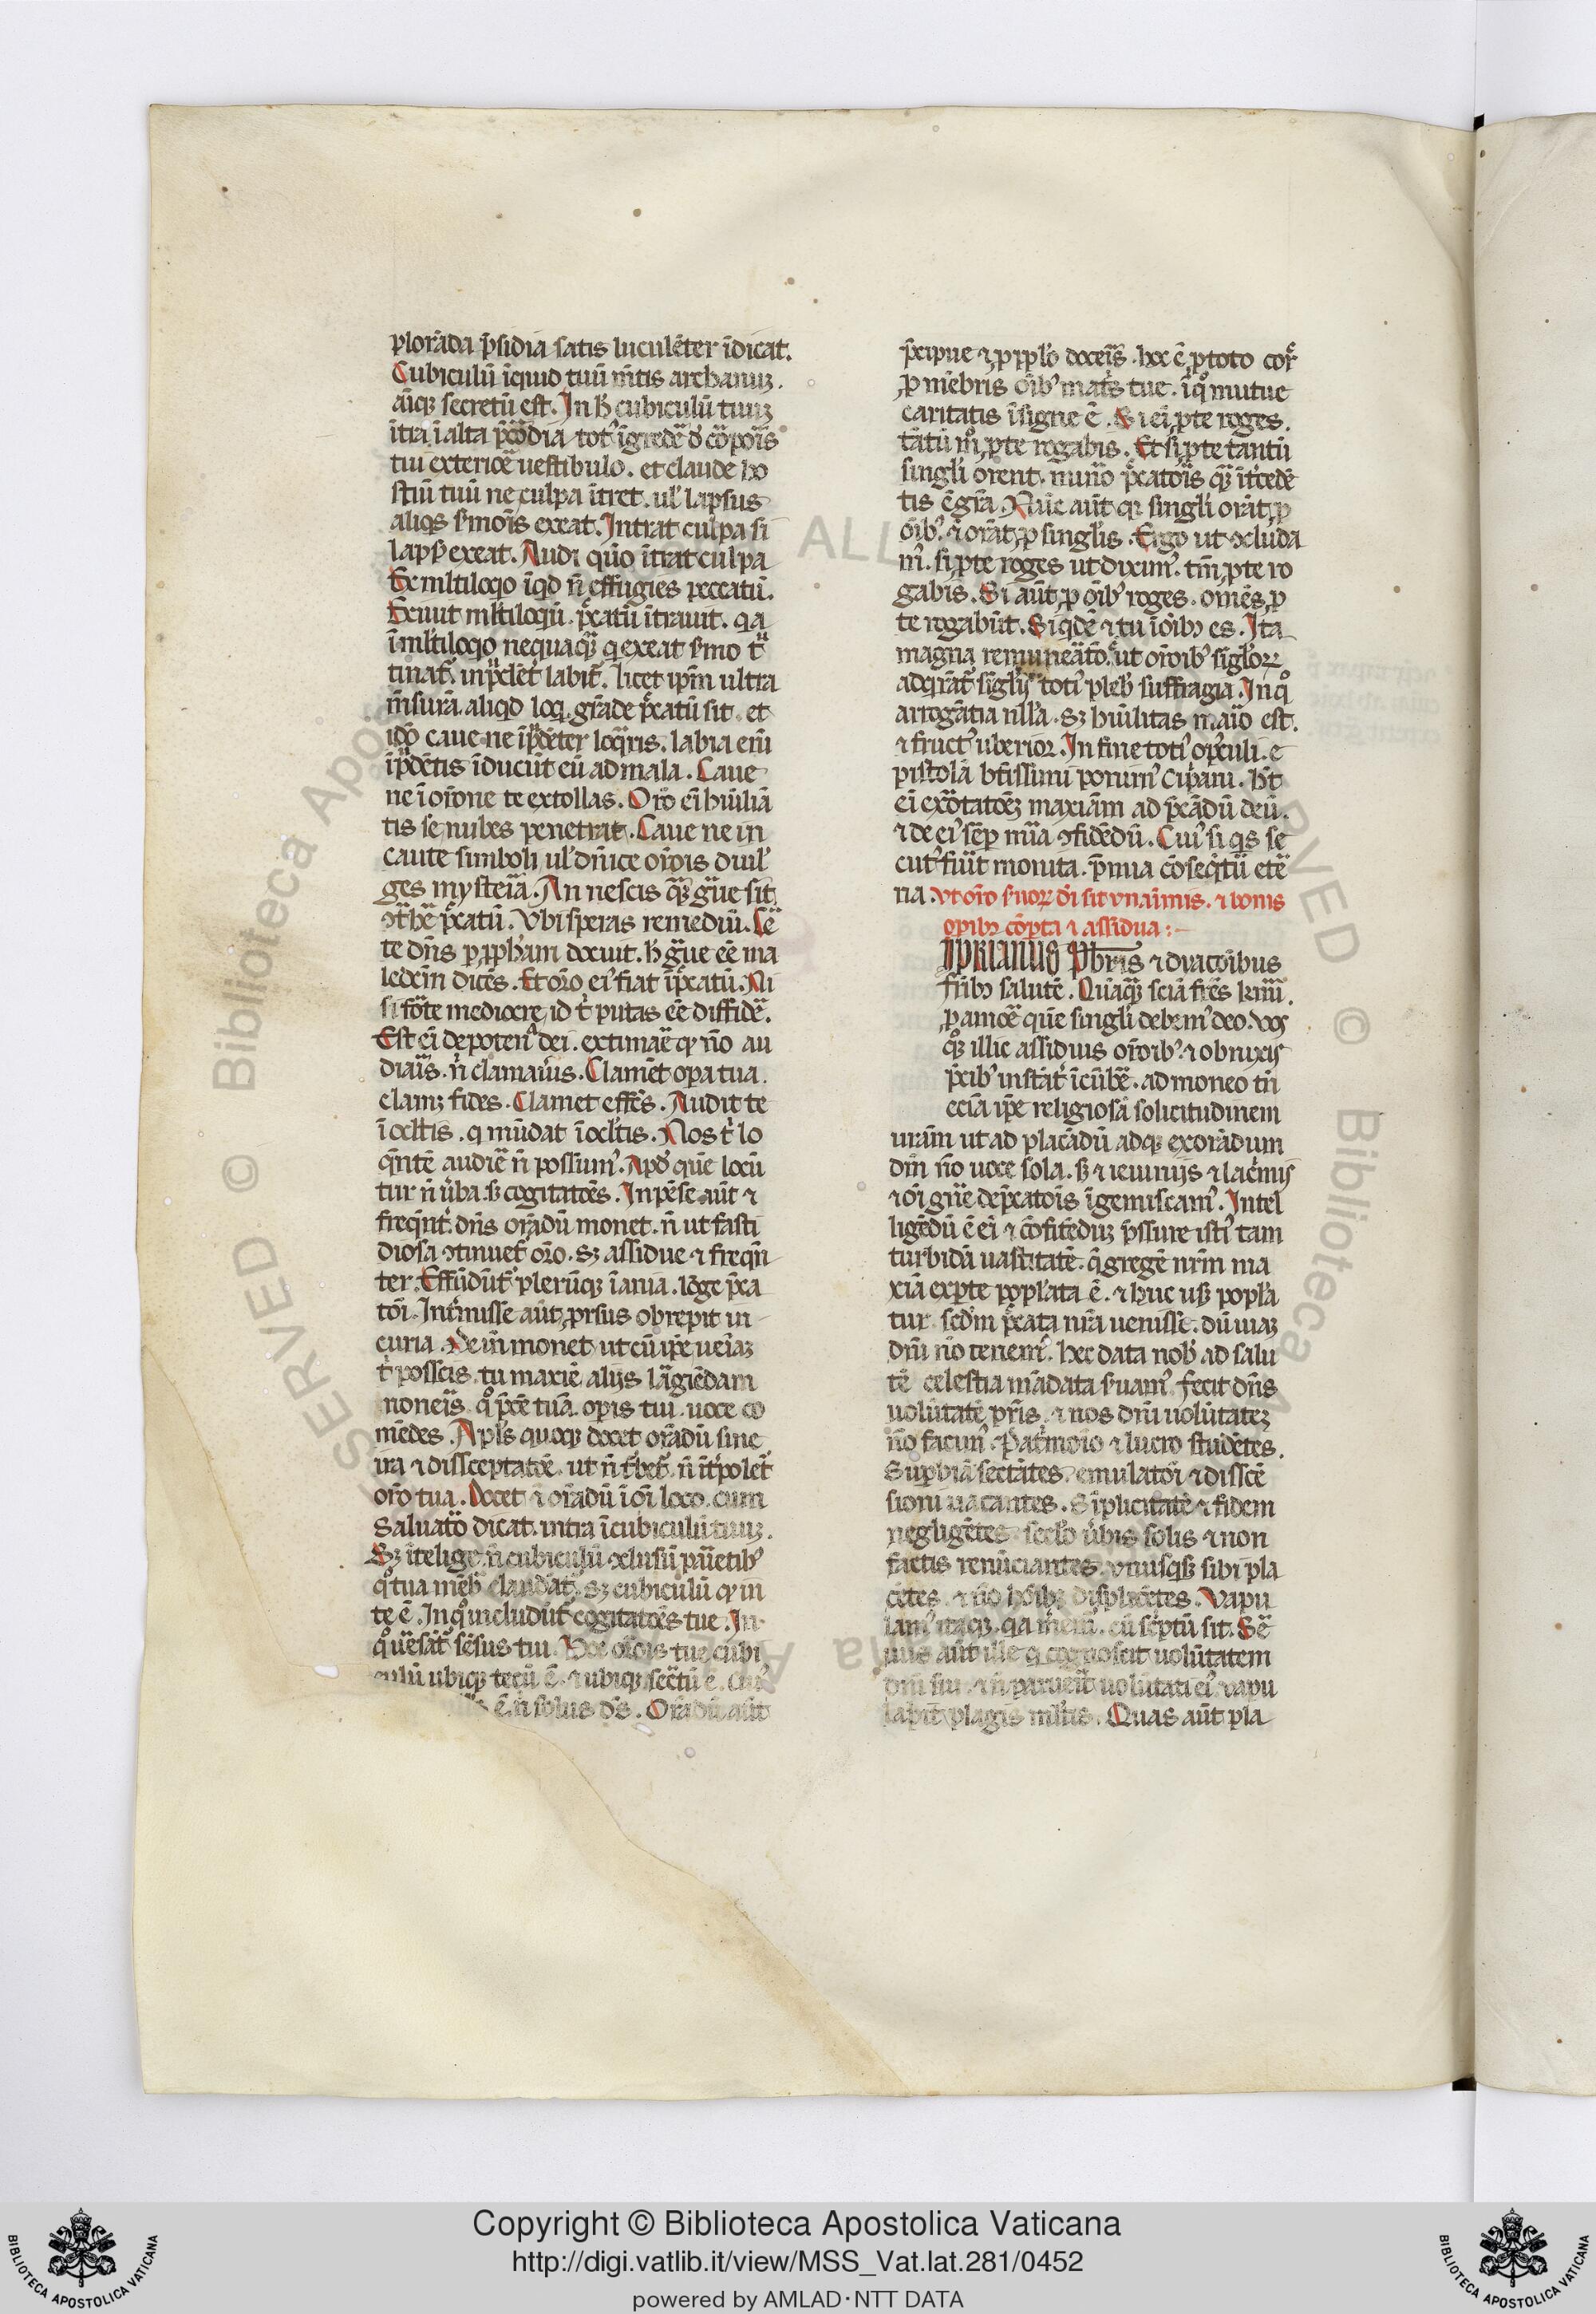 plorāda p̄sidia satis luculēter īdicat.
Cubiculū īquid tuū m̄tis archanuʒ.
aīq; secretū est. In h̄ cubiculū tuuʒ
tui exteriōe uestibulo. et claude ho
stiū tuū ne culpa ītret. ul' lapsus
aliq̄s s̄mōīs exeat. Intrat culpa si
laps' exeat. Audi quō ītrat culpa
Ex mltiloq̄o īqd n̄ effugies peccatū.
Exiuit mltiloqū. p̄catū ītrauit. qa
ī mltiloq̄o nequaq̄ꝫ q exeat s̄mo
labit̄. licet ip̄m ultra
m̄surā aliqd loq̄ grāde p̄catū sit. et
idō caue ne īp̄dēter loq̄ris. labia eni
īp̄dētis īducūt eū ad mala. Caue
ne ī orōne te extollas. Orō ei hūiliā
tis se nubes penetrat. Caue ne in
caute simboli ul' dn̄ice orōis diul'
ges mysteria. An nescis q̄ꝫ gūe sit
p̄catū. Vbi speras remediū.
te dn̄s p ꝓph̄am docuit. h̄ gūe eē ma
ledcīm dicēs. Et orō ei' fiat ī p̄catū. Ni
si fōte mediocre id t̄ putas eē diffidē.
Est ei de potēn dei. extimāe qꝫ nō au
diaīs. n̄ clamaūis. Clamēt opa tua.
clamꝫ fides. Clamet effēs. Audit te
ī ocltis. q mūdat ī ocltis. Nos t̄ lo
q̄ntē audiē n̄ possum'. Apd' quē locū
tur n̄ ūba. sꝫ cogitatōēs. In pēse aūt ⁊
freq̄nt dn̄s orādū monet. n̄ ut fasti
diosa ↄtinuet' orō. sꝫ assidue ⁊ freq̄n
ter. Effūdūt' plerūq; īania. lōge p̄ca
tōi. Int̄misse aūt prsus obrepit in
curia. Dein monet ut cū ip̄e ueīaꝫ
t̄ posscis. tu maxiē alijs lagiēdam
noueīs. q̊ p̄ce tuā opis tui uoce co
mēdes. Apl's quoq; docet orādū sine
ira ⁊ dissceptatōe. ut n̄ t̄bet'. n̄ īt̄polet'
orō tua. Docet ⁊ orādū ī oī loco. cum
Saluatō dicat. intra ī cubiculū tuuʒ.
Sꝫ īteligo n̄ cubiculū ↄclusū pietib'
q̊ tua mēb' claudāt'. sꝫ cubiculū qꝫ in
te ē. In q̊ includūt' cogitatōēs tue. In
q̊ uēsāt' sēsus tui. Hoc orōis tue cubi
culū ubiq; tecū ē. ⁊ ubiq; sectū ē.
ē. n̄ solus ds. Orādū aūt
p̄cipue ⁊ ꝓ ppl'o doceīs. hoc ē ꝓ toto cor̄
ꝓ mēbris oīb' mat̄s tue. ī q̊ mutue
caritatis īsigne ē. Si ei ꝓ te roges.
tātū m̊ ꝓ te rogabis. Et si ꝓ te tantū
singl'i orent. minō p̄catoīs q̄ꝫ īt̄cedē
tis ē grā. Nūc aūt qꝫ singl'i orāt ꝓ
oīb'. ⁊ orāt ꝓ singl'is. Ergo ut ↄcluda
m'. si ꝓ te roges ut dixim'. tm̄ ꝓ te ro
gabis. Si aūt ꝓ oīb' roges. omēs ꝓ
te rogabūt. Siqdē ⁊ tu ī oībꝫ es. Ita
magna remuneātō. ut orōib' sigl'oꝝ
adq̄rāt' sigl'is toti' pleb' suffragia. In q̊
arrogātia nll'a. sꝫ hūilitas maio est.
⁊ fruct' uberior. In fine toti' opculi. e
pistolā btissimi Cip̄ani. h̄t
ei exōtatōeʒ maxiām ad p̄cādū deū.
⁊ de ei' sēp mīa ↄfidēdū. Cui' si qs se
cut' fūīt monita. p̄mia cōseq̄tū etē
na. Vt orō s̄uoꝝ dī sit vnaīmis. ⁊ bonis
opibꝫ cōpta ⁊ assidua:-
IPRIANUS Pbris ⁊ diacoībus
frībꝫ salutē. Quāq̄ꝫ sciā frēs kmi.
ꝓ amōe quē singl'i debem' deo. vos
q̊ꝫ illic assiduis orōib'. ⁊ obnixis
p̄cib' instāt' īcūbē. admoneo tn̄
eciā ip̄e religiosā solicitudinem
urām ut ad placādū adq; exorādum
dm̄ nō uoce sola. sꝫ ⁊ ieiunijs ⁊ lac̄mis
⁊ oī gn̄e dep̄catoīs īgemiscam'. Intel
ligēdū ē ei ⁊ cōfitēduʒ p̄ssure isti' tam
turbidā uastitatē. q̄ gregē nr̄m ma
xīa ex pte popl'ata ē. ⁊ huc usqꝫ popl'a
tur. scdm p̄cata nr̄a uenisse. dū uiaʒ
dn̄i nō tenem'. hec data nob' ad salu
tē celestia mādata s̄uam'. fecit dn̄s
uolūtatē pr̄is. ⁊ nos dn̄i uolūtateʒ
nō facim'. Pat̄moīo ⁊ lucro studētes.
Supbiā sectātes. emulatōi ⁊ disscē
sioni uacantes. Sīplicitatē ⁊ fidem
negligētes. secl'o ūbis solis ⁊ non
factis renūciantes. vnusq̄sqꝫ sibi pla
cētes. ⁊ nō hōibꝫ displicētes. Vapu
lam' itaq; qa m̄em'. cū sc̄ptū sit. Sē
uus aūt ille q cognoscit uolūtatem
dn̄i sui. ⁊ n̄ parueīt uolūtati ei'. vapu
labit plagis mltis. Quas aūt pla
ALL
RESERVED © Biblioteca Apostolica Vaticana
Copyright © Biblioteca Apostolica Vaticana
http://digi.vatlib.it/view/MSS_Vat.lat.281/0452
powered by AMLAD·NTT DATA
BIBLIOTECA APOSTOLICA VATICANA
BIBLIOTECA APOSTOLICA VATICANA